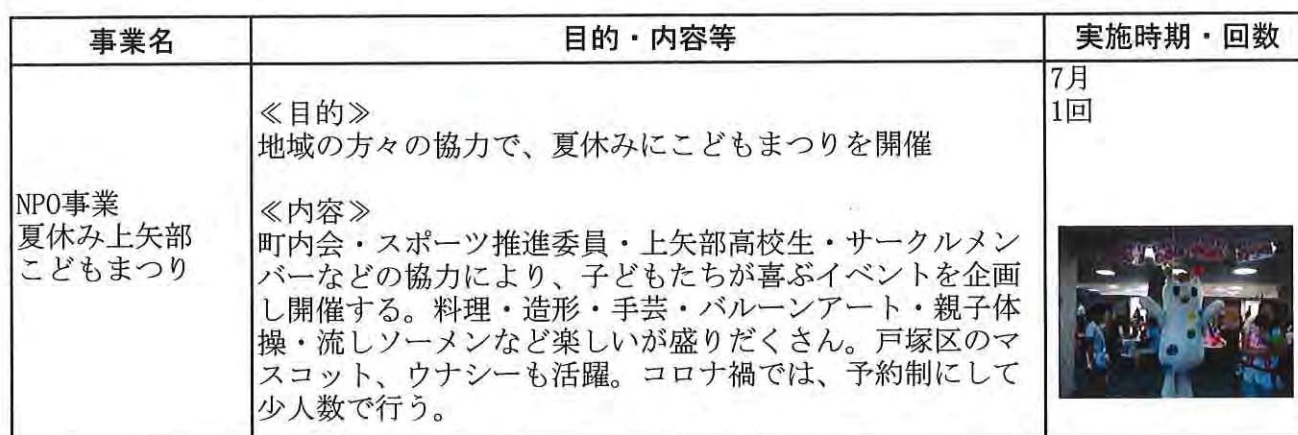 事業名
目的・内容等
実施時期・回数
NPO事業
夏休み上矢部
こどもまつり
≪目的≫
地域の方々の協力で、夏休みにこどもまつりを開催
≪内容≫
町内会・スポーツ推進委員・上矢部高校生・サークルメン
バーなどの協力により、子どもたちが喜ぶイベントを企画
し開催する。料理・造形・手芸・バルーンアート・親子体
操・流しソーメンなど楽しいが盛りだくさん。戸塚区のマ
スコット、ウナシーも活躍。コロナ禍では、予約制にして
少人数で行う。
7月
1回